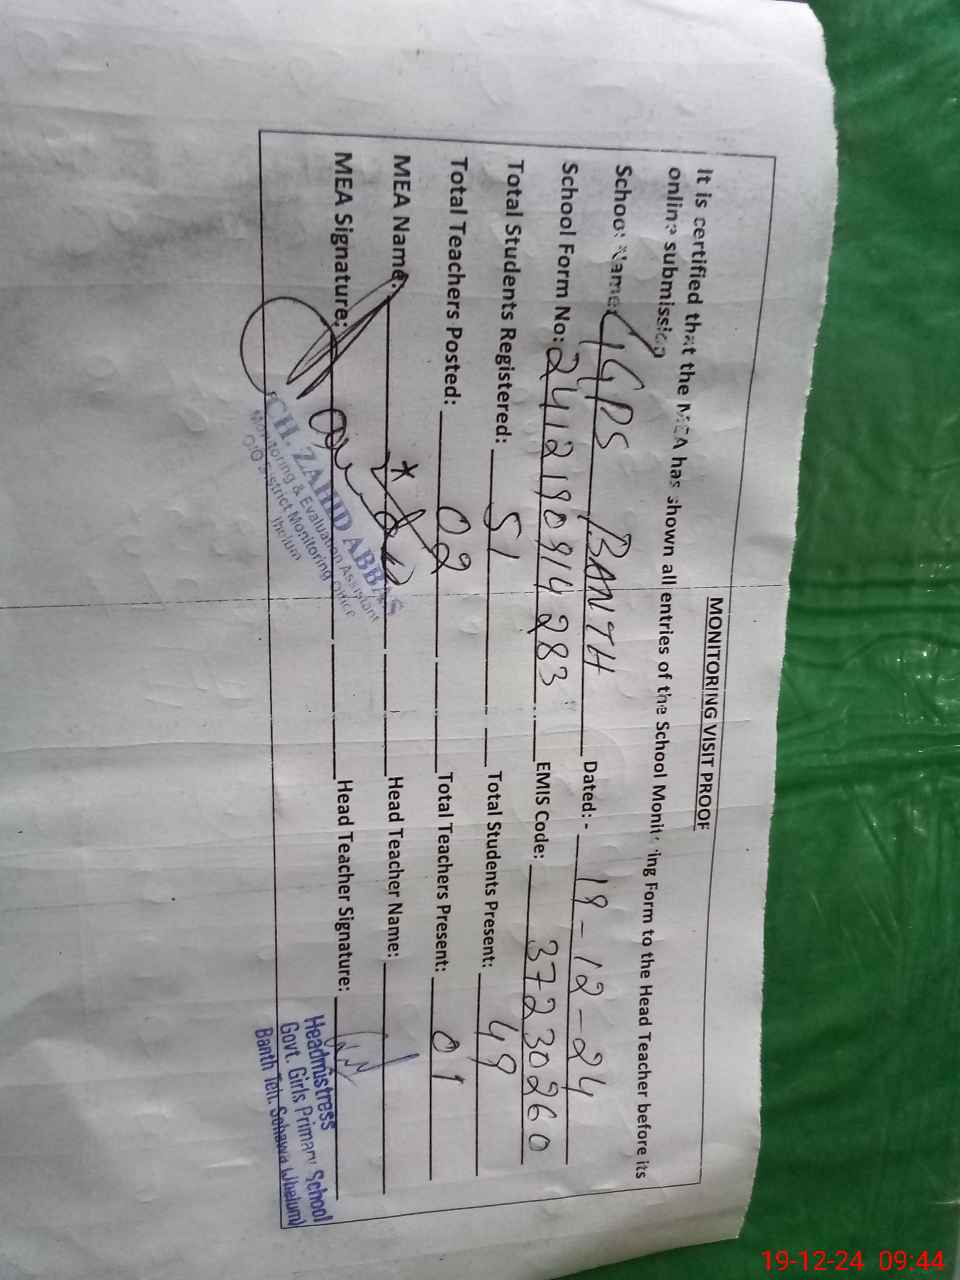 MONITORING VISIT PROOF
It is certified that the MEA has shown all entries of the School Monitoring Form to the Head Teacher before its
online submission
School Name: GGPS BANTH Dated: - 19-12-24
School Form No: 2412190914283 EMIS Code: 37230260
Total Students Registered: 51 Total Students Present: 49
Total Teachers Posted: 02 Total Teachers Present: 01
MEA Name: Head Teacher Name:
MEA Signature: Head Teacher Signature:
CH. ZAHID ABBAS
Monitoring & Evaluation Assistant
O/O District Monitoring Office
Jhelum
Headmistress
Govt. Girls Primary School
Banth Teh. Sohawa (Jhelum)
19-12-24 09:44